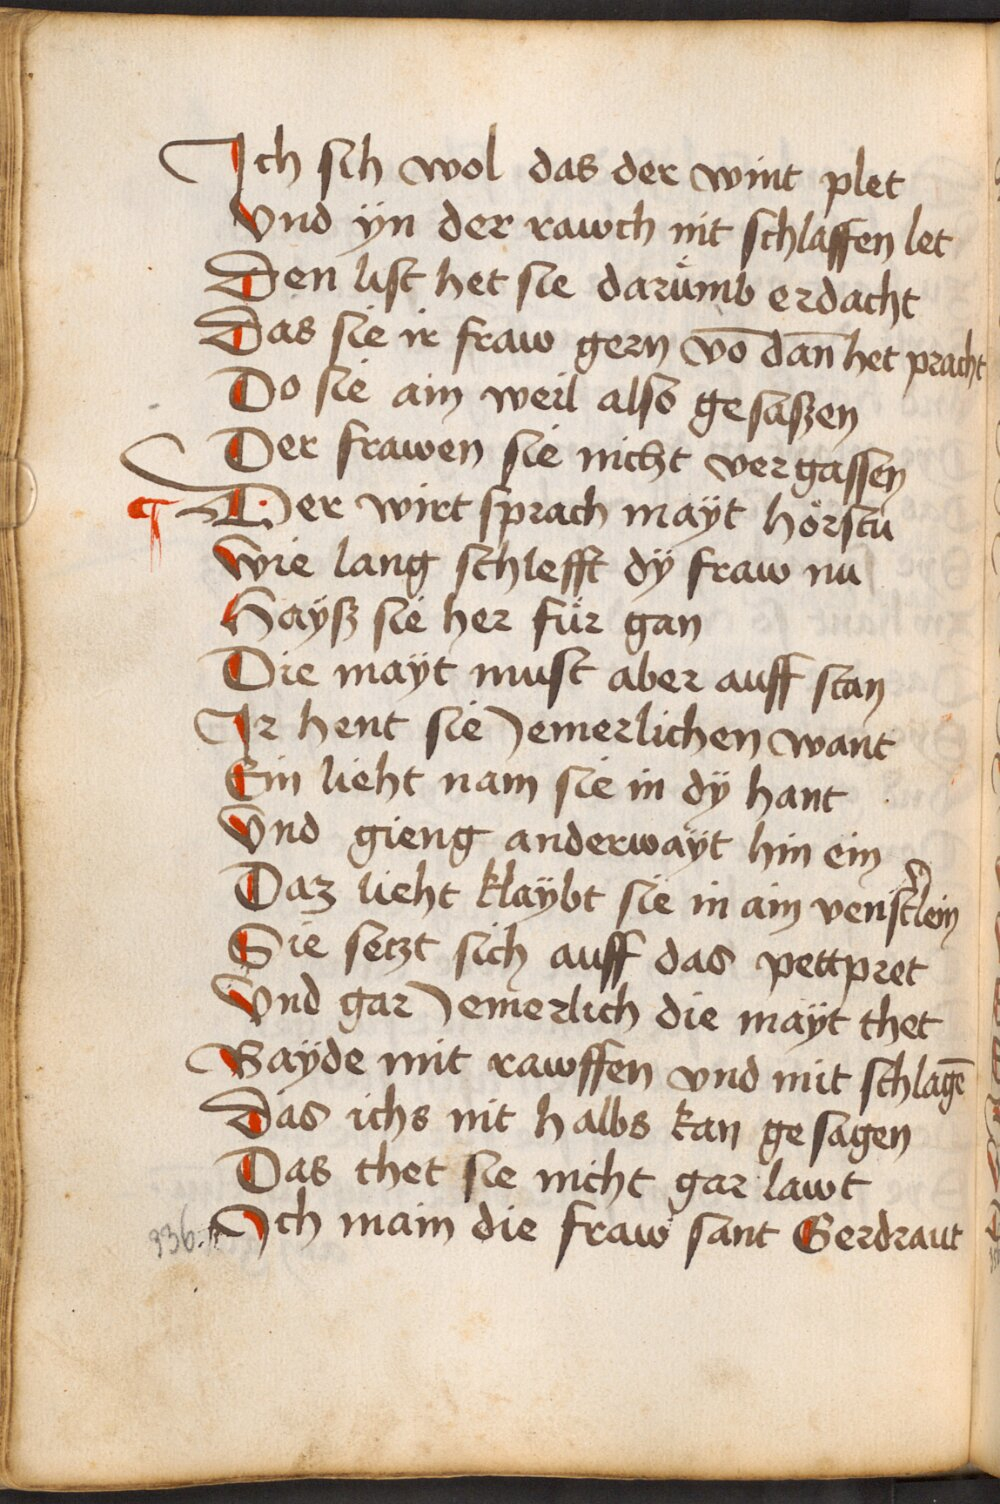 Ich sih wol das der wint plet
Vnd ÿn der rawch nit schlaffen let
Den list het sie darümb erdacht
Das sie ir fraw gern vō dan̄ het pracht
Do sie ain weil also gesaßen
Der frawen sie nicht vergässen
¶ Der wirt sprach maÿt hörstu
Wie lang schlefft dÿ fraw nu
Haÿß sie her für gan
Die maÿt must aber auff stan
Ir hent sie Jemerlichen want
Ein lieht nam sie in dÿ hant
Vnd gieng anderwaÿt hin ein
Daz lieht klaÿbt sie in ain venst̓lein
Sie setzt sich auff das pettpret
Vnd gar Jemerlich die maÿt thet
Baÿde mit rawffen vnd mit schlagē
Das ichs nit halbs kan gesagen
Das thet sie nicht gar lawt
Ich main die fraw sant Gerdraut